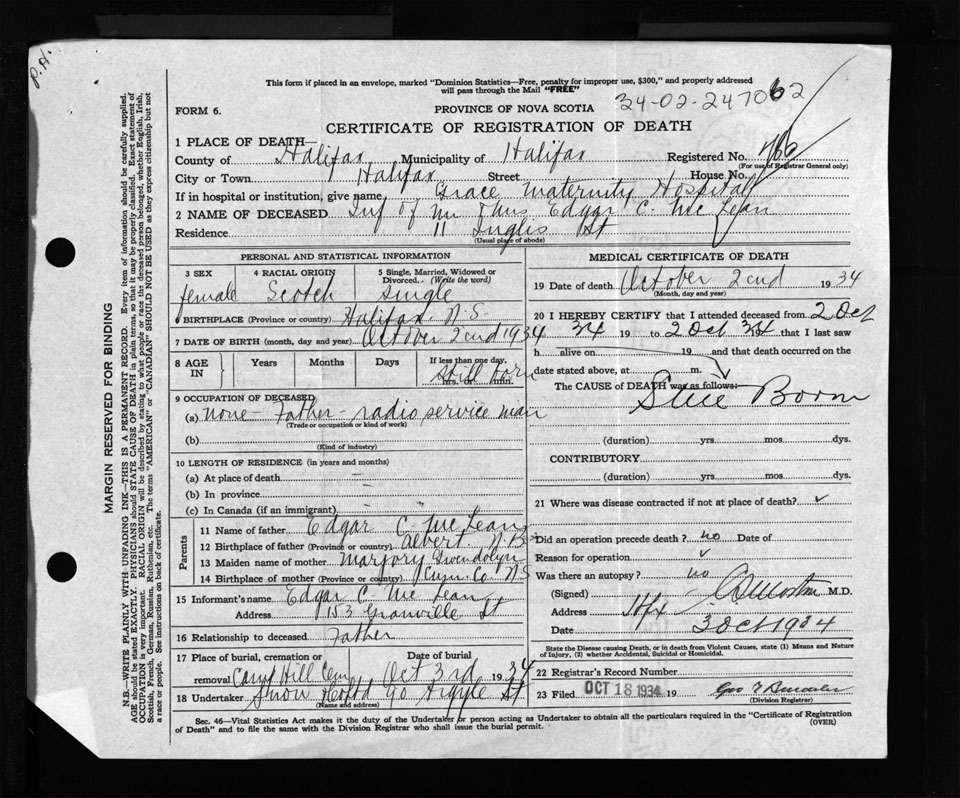 P.H.
This form if placed in an envelope, marked "Dominion Statistics—Free, penalty for improper use, $300," and properly addressed
will pass through the Mail "FREE"
34-02-247062
FORM 6.
PROVINCE OF NOVA SCOTIA
CERTIFICATE OF REGISTRATION OF DEATH
1 PLACE OF DEATH—
County of Halifax Municipality of Halifax Registered No.
(For use of Registrar General only)
City or Town Halifax Street House No.
If in hospital or institution, give name Grace Maternity Hospital
2 NAME OF DECEASED Inf of Mr & Mrs Edgar C. McLean
Residence 11 Inglis St
(Usual place of abode)
PERSONAL AND STATISTICAL INFORMATION
3 SEX female
4 RACIAL ORIGIN Scotch
5 Single, Married, Widowed or Divorced. (Write the word) single
6 BIRTHPLACE (Province or country) Halifax N.S.
7 DATE OF BIRTH (month, day and year) October 2cnd 1934
8 AGE IN Years Months Days If less than one day, hrs. or min. still born
9 OCCUPATION OF DECEASED
(a) none - Father - radio service man
(Trade or occupation or kind of work)
(b)
(Kind of industry)
10 LENGTH OF RESIDENCE (in years and months)
(a) At place of death
(b) In province
(c) In Canada (if an immigrant)
Parents
11 Name of father Edgar C. McLean
12 Birthplace of father (Province or country) Albert. N.B.
13 Maiden name of mother Marjory Gwendolyn
14 Birthplace of mother (Province or country) Co. N.S
15 Informant's name Edgar C. McLean
Address 153 Granville St
16 Relationship to deceased Father
17 Place of burial, cremation or removal Camp Hill Cem Date of burial Oct 3rd 1934
18 Undertaker Snow Argyle St
(Name and address)
MEDICAL CERTIFICATE OF DEATH
19 Date of death October 2cnd 1934
(Month, day and year)
20 I HEREBY CERTIFY that I attended deceased from 2 Oct
34 19 to 2 Oct 34 that I last saw
h alive on 19 and that death occurred on the
date stated above, at m.
The CAUSE of DEATH was as follows:
Still Born
(duration) yrs. mos. dys.
CONTRIBUTORY
(duration) yrs. mos. dys.
21 Where was disease contracted if not at place of death? ✓
Did an operation precede death? no Date of
Reason for operation ✓
Was there an autopsy? no
(Signed) M.D.
Address Hfx
Date 3 Oct 1934
State the Disease causing Death, or in death from Violent Causes, state (1) Means and Nature
of Injury, (2) whether Accidental, Suicidal or Homicidal.
22 Registrar's Record Number
23 Filed OCT 18 1934 19
(Division Registrar)
Sec. 46—Vital Statistics Act makes it the duty of the Undertaker or person acting as Undertaker to obtain all the particulars required in the "Certificate of Registration
of Death" and to file the same with the Division Registrar who shall issue the burial permit.
(OVER)
MARGIN RESERVED FOR BINDING
N.B.—WRITE PLAINLY WITH UNFADING INK—THIS IS A PERMANENT RECORD. Every item of information should be carefully supplied.
AGE should be stated EXACTLY. PHYSICIANS should STATE CAUSE OF DEATH in plain terms, so that it may be properly classified. Exact statement of
OCCUPATION is very important. RACIAL ORIGIN will be described by stating to what people or race the deceased person belonged, whether English, Irish,
Scottish, French, German, Russian, Ruthenian, etc. The terms "AMERICAN" or "CANADIAN" SHOULD NOT BE USED as they express citizenship but not
a race or people. See instructions on back of certificate.